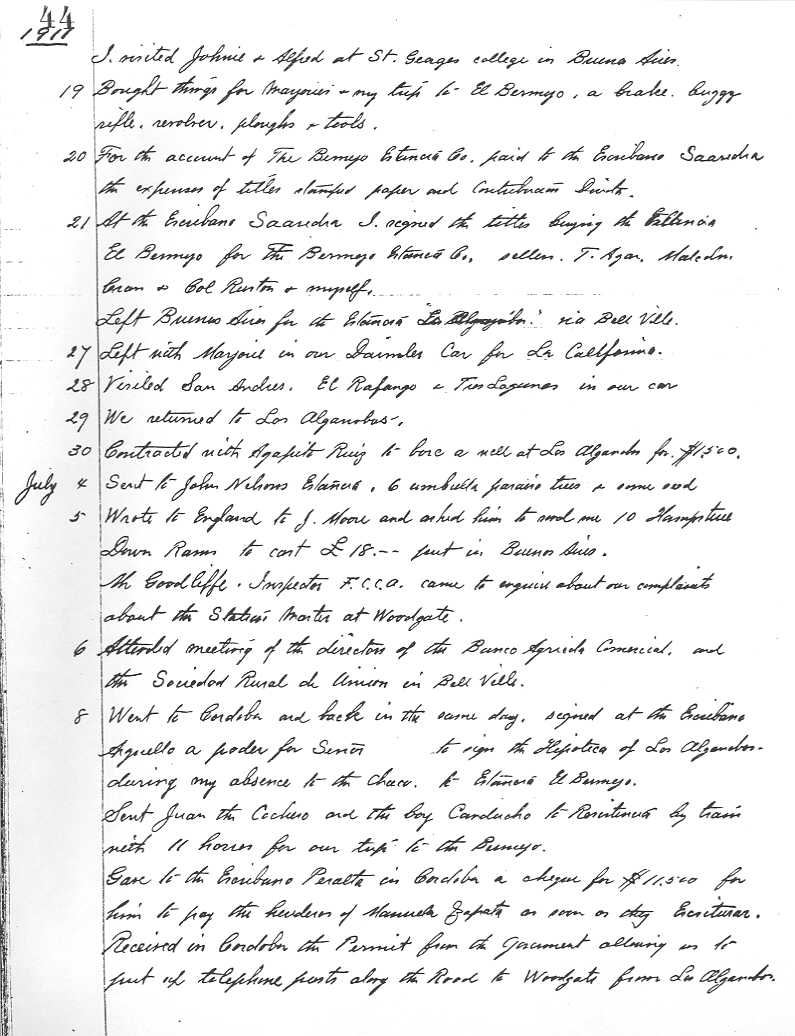 44
1911
I. visited Johnie & Alfred at St. Geages college in Buenos Aires.
19 Bought things for Marjories & my trip to El Bermejo, a brake. buggy
rifle. revolver, ploughs & tools.
20 For the account of The Bermejo Estancia Co. paid to the Escribano Saavedra
the expenses of titles stamped paper and Contribucion Directa.
21 At the Escribano Saavedra I. signed the titles buying the Estancia
El Bermejo for The Bermejo Estancia Co, sellers. T. Agar, Malcolm.
Cran & Col Ruston & myself.
Left Buenos Aires for the Estancia "Los Algarrobos" via Bell Ville.
27 Left with Marjorie in our Daimler Car for La California.
28 Visited San Andres, El Rafango & Tres Lagunas in our car
29 We returned to Los Algarrobos.
30 Contracted with Agapito Ruiz to bore a well at Los Algarrobos for $1,500.
July 4 Sent to John Nelsons Estancia, 6 umbrella paraiso trees & some seed
5 Wrote to England to J. Moore and asked him to send me 10 Hampshire
Down Rams to cost £ 18.-- put in Buenos Aires.
Mr Goodliffe. Inspector F.C.C.A. came to enquire about our complaints
about the Station Master at Woodgate.
6 Attended meeting of the directors of the Banco Agricola Comercial, and
the Sociedad Rural de Union in Bell Ville.
8 Went to Cordoba and back in the same day, signed at the Escribano
Arguello a poder for Senor to sign the Hipoteca of Los Algarrobos-
during my absence to the Chaco. to Estancia El Bermejo.
Sent Juan the Cochero and the boy Carducho to Resistencia by train
with 11 horses for our trip to the Bermejo.
Gave to the Escribano Peralta in Cordoba a cheque for $ 11,500 for
him to pay the herederos of Manuela Zapata as soon as they Escriturar.
Received in Cordoba the Permit from the Goverment allowing us to
put up telephone posts along the Road to Woodgate from Los Algarrobos.